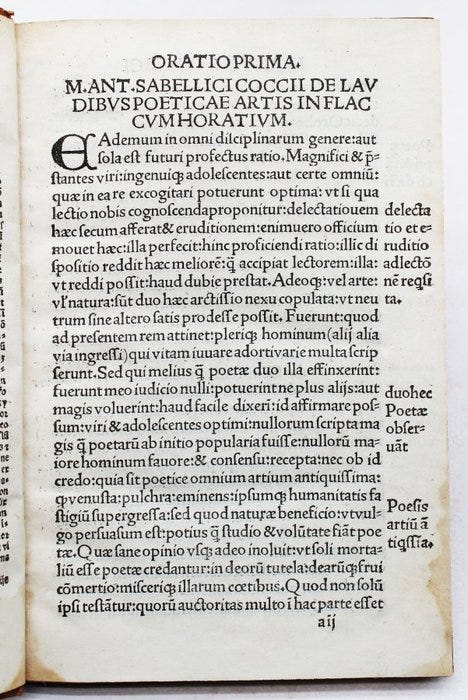 ORATIO PRIMA.
M. ANT. SABELLICI COCCII DE LAV
DIBVS POETICAE ARTIS IN FLAC
CVM HORATIVM.
EAdemum in omni disciplinarum genere: aut
sola est futuri profectus ratio. Magnifici & p̄-
stantes viri: ingenuiq; adolescentes: aut certe omniū:
quæ in ea re excogitari potuerunt optima: vt si qua
lectio nobis cognoscenda proponitur: delectatiouem
hæc secum afferat & eruditionem: enimuero officium
mouet hæc: illa perfecit: hinc proficiendi ratio: illic di
spositio reddit hæc meliorē: q̄ accipiat lectorem: illa:
vt reddi possit: haud dubie prestat. Adeoq; vel arte:
vl' natura: sūt duo hæc arctissio nexu copulata: vt neu
trum sine altero satis prodesse possit. Fuerunt: quod
ad presentem rem attinet: pleriq; hominum (alij alia
via ingressi) qui vitam iuuare adorti varie multa scrip
serunt. Sed qui melius q̄ poetæ duo illa effinxerint:
fuerunt meo iudicio nulli: potuerint ne plus alijs: aut
magis voluerint: haud facile dixerī: id affirmare pos-
sum: viri & adolescentes optimi: nullorum scripta ma
gis q̄ poetarū ab initio popularia fuisse: nullorū ma-
iore hominum fauore: & consensu: recepta: nec ob id
credo: quia sit poetice omnium artium antiquissima:
ꝙ venusta: pulchra: eminens: ipsumq; humanitatis fa
stigiū supergressa: sed quod naturæ beneficio: vt vul-
go persuasum est: potius q̄ studio & volūtate fiāt poe
tæ. Quæ sane opinio vsq; adeo inoluit: vt soli morta-
liū esse poetæ credantur: in deorū tutela: dearūq; frui
cōmertio: misceriq; illarum cœtibus. Quod non solū
ipsi testātur: quorū auctoritas multo ī hac parte esset
a ij
delecta
tio et e-
ruditio
ad lectō
nē reqsi
ta.
duo hec
Poetæ
obser-
uāt
Poesis
artiū ā
tiqssīa.